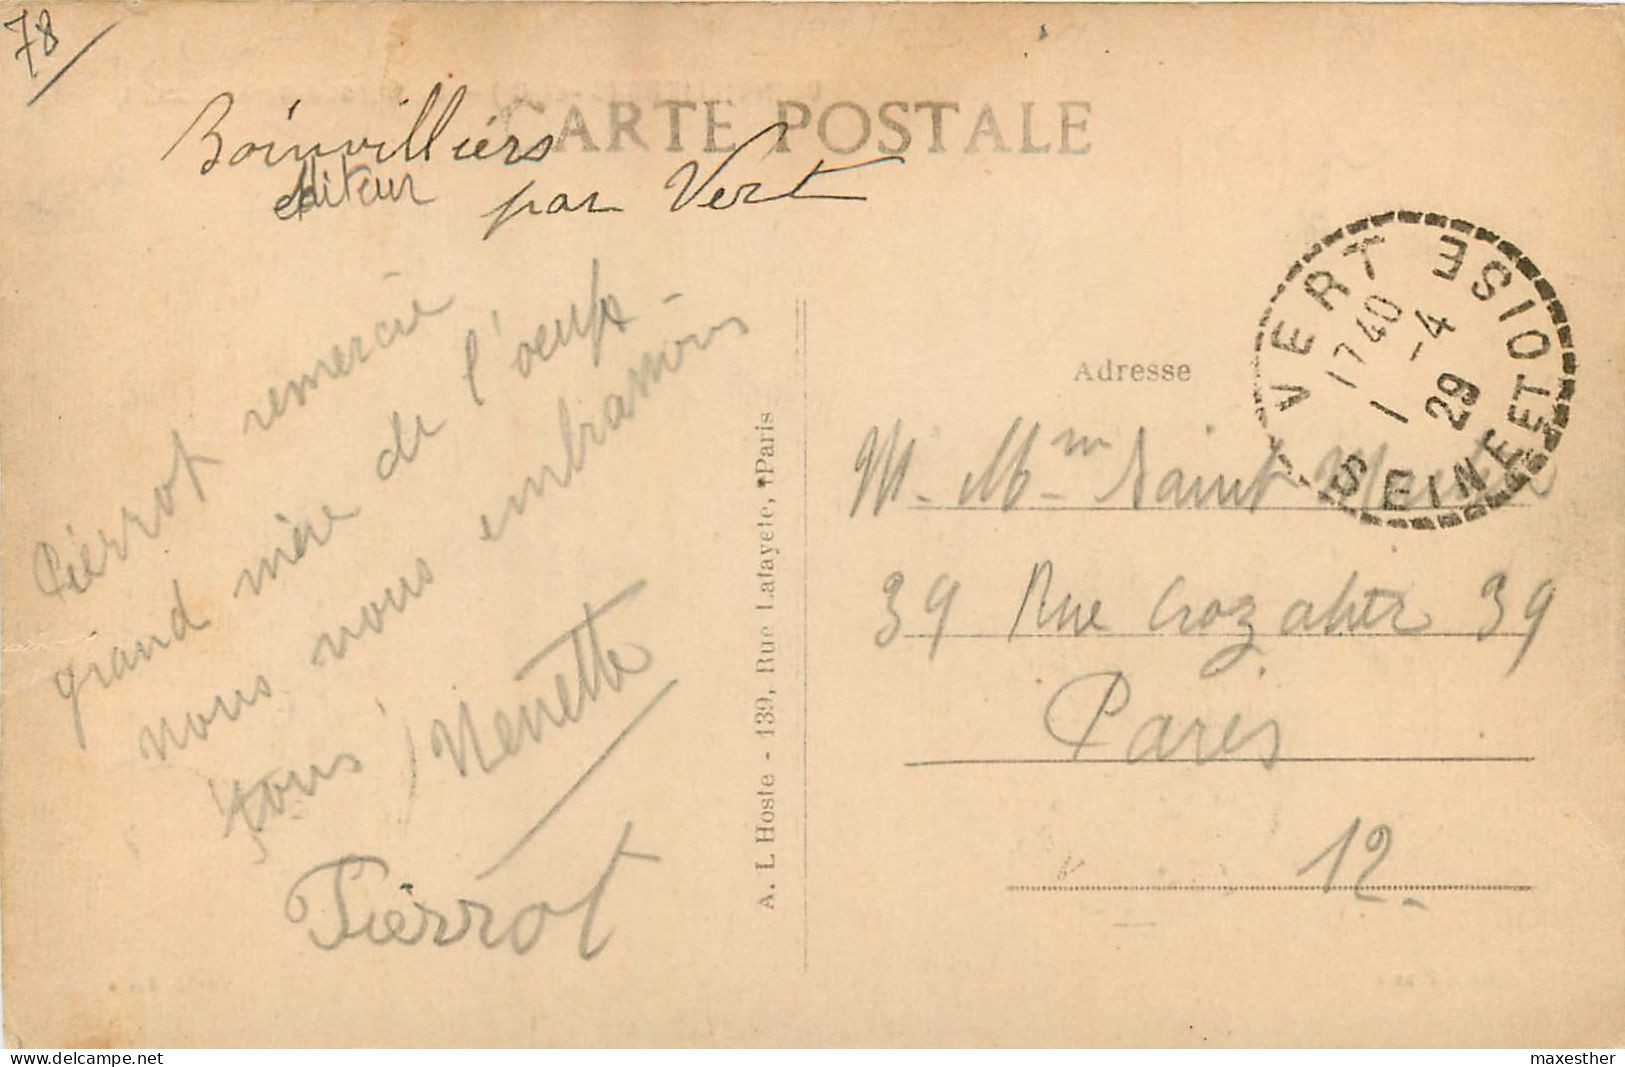 78
CARTE POSTALE
Boinvilliers
editeur par Vert
Pierrot remercie
grand mère de l'oeuf
nous vous embrassons
tous Nenette
Pierrot
A. L'Hoste - 139, Rue Lafayete, Paris
VERT
SEINE ET OISE
17 40
1 -4
29
Adresse
M. Mme Saint
39 Rue Crozatier 39
Paris
12.
delcampe.net
maxesther